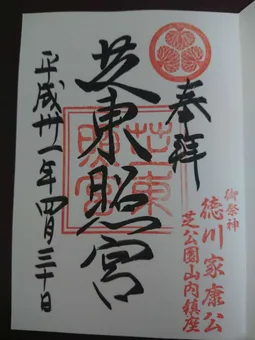 奉拝
御祭神
徳川家康公
芝公園山内鎮座
芝東照宮
芝東照宮
平成卅一年四月三十日